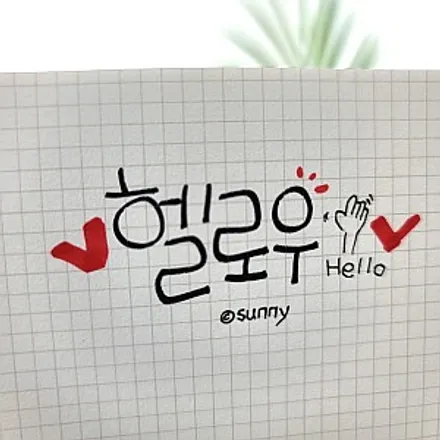 헬로우
Hello
©sunny